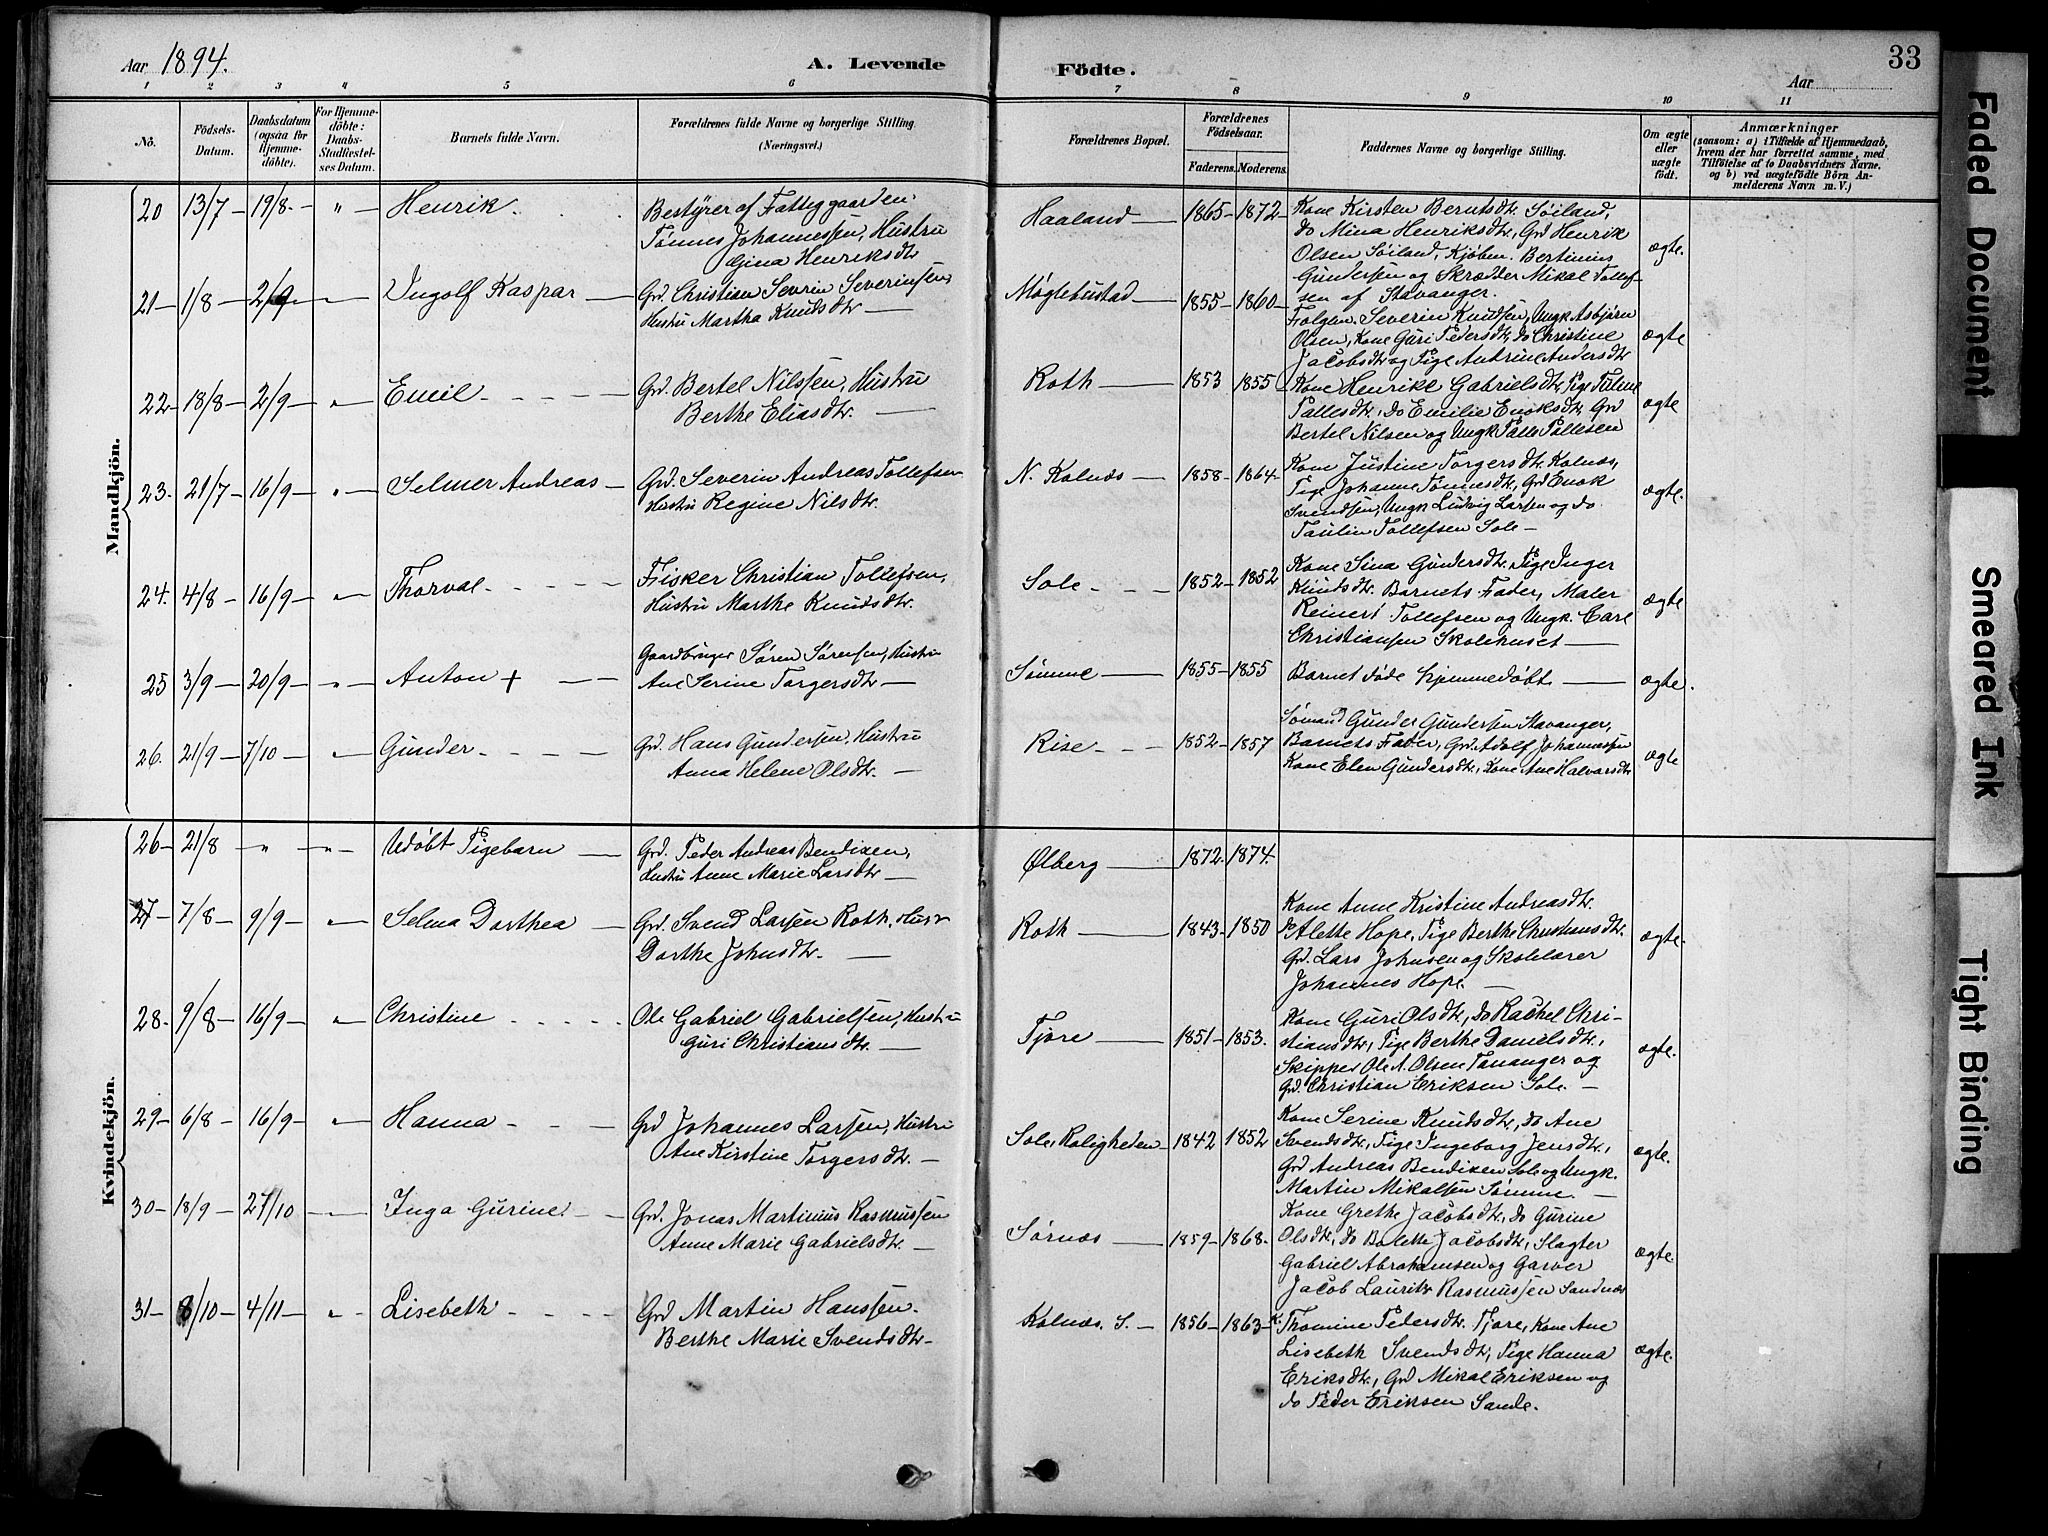 Aar 1894.
A. Levende
Födte.
Aar
33
1 2 3 4 5 6 7 8 9 10 11
No.
Födsels-Datum.
Daabsdatum (ogsaa for Hjemmedöbte).
For Hjemmedöbte: Daabs-Stadfæstelses Datum.
Barnets fulde Navn.
Forældrenes fulde Navne og borgerlige Stilling.
(Næringsvei.)
Forældrenes Bopæl.
Forældrenes Födselsaar.
Faderens. Moderens.
Faddernes Navne og borgerlige Stilling.
Om ægte eller uægte födt.
Anmærkninger
(saasom: a) i Tilfælde af Hjemmedaab,
hvem der har forrettet samme, med
Tilföielse af to Daabsvidners Navne,
og b) ved uægtefödte Börn An-
melderens Navn m. V.)
Mandkjön.
20 13/7 - 19/8. - " - Henrik.
Bestyrer af Fattiggaarden
Tønnes Johannessen, Hustru
Gina Henriksdtr
Haaland - 1865 - 1872
Kone Kirsten Berntsdtr. Søiland,
do Mina Henriksdtr, Grd Henrik
Olsen Søiland, Kjøbm. Bertinius
Gundersen og Skrædder Mikal Tollef-
sen af Stavanger.
ægte.
21 - 1/8 - 2/9 - Ingolf Kaspar -
Grd. Christian Sevrin Severinsen,
Hustru Martha Knudsdtr -
Møglebustad - 1855 - 1860
Severin Knudsen, Ungk Asbjørn
Olsen, Kone Guri Pedersdtr, do Christine
Jacobsdtr og Pige Andrine Andersdtr
ægte
22 - 18/8 - 2/9 - " Emil - - -
Grd. Bertel Nilssen, Hustru
Berthe Eliasdtr. -
Roth - 1853 1855
Kone Henrikke Gabrielsdtr, Pige Taline
Tallesdtr, do Emilie Enoksdtr, Grd
Bertel Nilsen og Ungk Talle Tallesen
ægte
23. - 21/7 - 16/9 - " - Selmer Andreas -
Grd. Severin Andreas Tollefsen
Hustru Regine Nilsdtr.
N. Kolnæs - 1858 - 1864
Kone Justine Torgersdtr. Kolnæs,
Pige Johanne Tønnesdtr, Grd Enok
Svendsen, Ungk Ludvig Larsen og do.
Paulin Tollefsen Sole -
ægte.
24. 4/8 - 16/9 - " Thorval - - -
Fisker Christian Tollefsen,
Hustru Marthe Knudsdtr.
Sole - - - 1852 - 1852
Kone Sina Gundersdtr, Pige Inger
Knudsdtr. Barnets Fader, Maler
Reinert Tollefsen og Ungk. Carl
Christiansen Skolehuset -
ægte
25 3/9 - 20/9 - " - Anton + -
Gaardbruger Søren Sørensen, Hustru
Ane Serine Torgersdtr -
Sømme - 1855 - 1855
Barnet døde hjemmedøbt -
ægte.
26. 21/9 - 7/10 - " Gunder - - -
Grd. Hans Gundersen, Hustru
Anna Helene Olsdtr. -
Rise - - 1852 - 1857
Sømand Gunder Gundersen Stavanger,
Barnets Fader, Grd. Adolf Johannessen
Kone Elen Gundersdtr, Kone Ane Halvorsdtr
ægte
Kvindekjön.
26 - 21/8 - " - " - Udøbt Pigebarn -
Grd. Peder Andreas Bendixen,
Hustru Anne Marie Larsdtr -
Ølberg - 1872. 1874.
27 - 7/8 - 9/9 - " - Selma Dorthea -
Grd. Svend Larsen Roth, Hustr
Dorthe Johnsdtr. -
Roth - 1843 - 1850
Kone Anne Kristine Andreasdtr.
do Alette Hope, Pige Berthe Christiansdtr.
Grd. Lars Johnsen og Skolelærer
Johannes Hope. -
ægte.
28. - 9/8 - 16/9 - " Christine - - - -
Ole Gabriel Gabrielsen, Hustru
Guri Christiansdtr. -
Tjore - 1851 - 1853.
Kone Guri Olsdtr, do Rachel Chri-
stiansdtr, Pige Berthe Danielsdtr,
Skipper Ole A. Olsen Tananger og
Grd. Christian Eriksen Sole. -
ægte.
29 - 6/8 - 16/9 - " - Hanna - - -
Grd Johannes Larsen, Hustru
Ane Kirstine Torgersdtr. -
Sole, Roligheden - 1842 1852
Kone Serine Knudsdtr, do Ane
Svendsdtr, Pige Ingeborg Jensdtr,
Grd Andreas Bendixen Sole og Ungk.
Martin Mikalsen Sømme. -
ægte.
30 - 18/9 - 27/10 - " Inga Gurine. - -
Grd. Jonas Martinius Rasmussen
Anne Marie Gabrielsdtr. -
Sørnæs - 1859 - 1868.
Kone Grethe Jacobsdtr, do Gurine
Olsdtr, do Bolette Jacobsdtr, Slagter
Gabriel Abrahamsen og Garver
Jacob Lauritz Rasmussen Sandnæs
ægte.
31 - 8/10 - 4/11 - " - Lisebeth - - - -
Grd Martin Hanssen.
Berthe Marie Svendsdtr -
Kolnæs. S. - 1856 - 1863 -
K. Thomine Pedersdtr. Tjore, Kone Ane
Lisebeth Svendsdtr, Pige Hanna
Eriksdtr, Grd Mikal Eriksen og
do Peder Eriksen Sande.
ægte.
Faded Document
Smeared Ink
Tight Binding